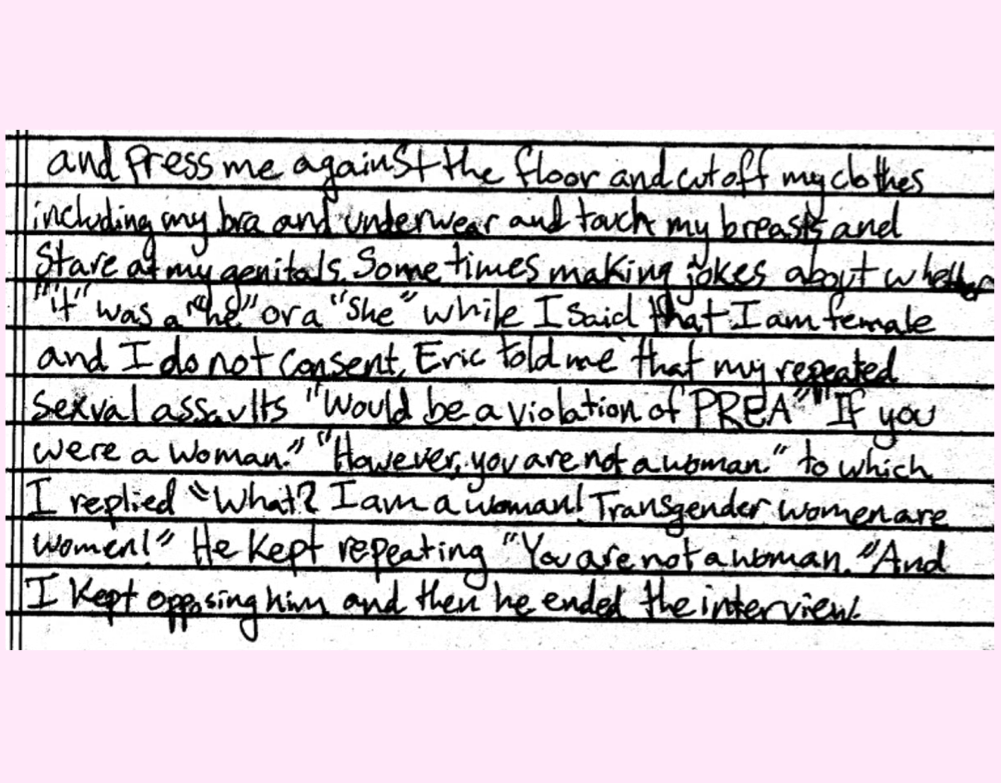 and press me against the floor and cut off my clothes
including my bra and underwear and touch my breasts and
Stare at my genitals. Sometimes making jokes about whether
"it" was a "he" or a "she" while I said that I am female
and I do not consent. Eric told me that my repeated
sexual assaults "Would be a violation of PREA" "If you
were a woman." "However, you are not a woman." to which
I replied "What? I am a woman! Transgender women are
women!" He kept repeating "You are not a woman." And
I kept opposing him and then he ended the interview.